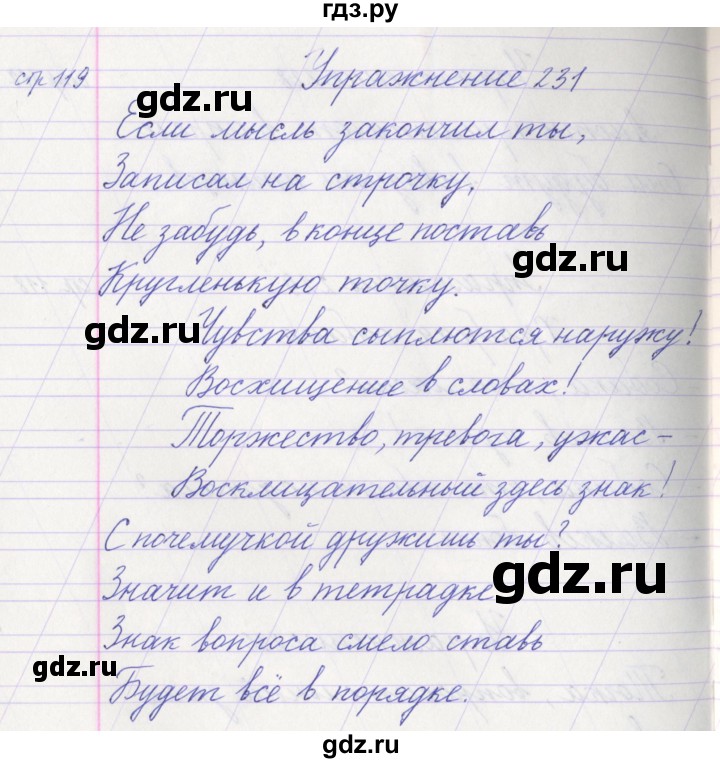 гдз.ру
стр 119
Упражнение 231
gdz.ru
Если мысль закончил ты,
Записал на строчку,
Не забудь, в конце поставь
gdz.ru
Кругленькую точку.
gdz.ru
Чувства сыплются наружу!
Восхищение в словах!
Торжество, тревога, ужас –
Восклицательный здесь знак!
С почемучкой дружишь ты?
gdz.ru
Значит и в тетрадке
Знак вопроса смело ставь
gdz.ru
Будет всё в порядке.
gdz.ru